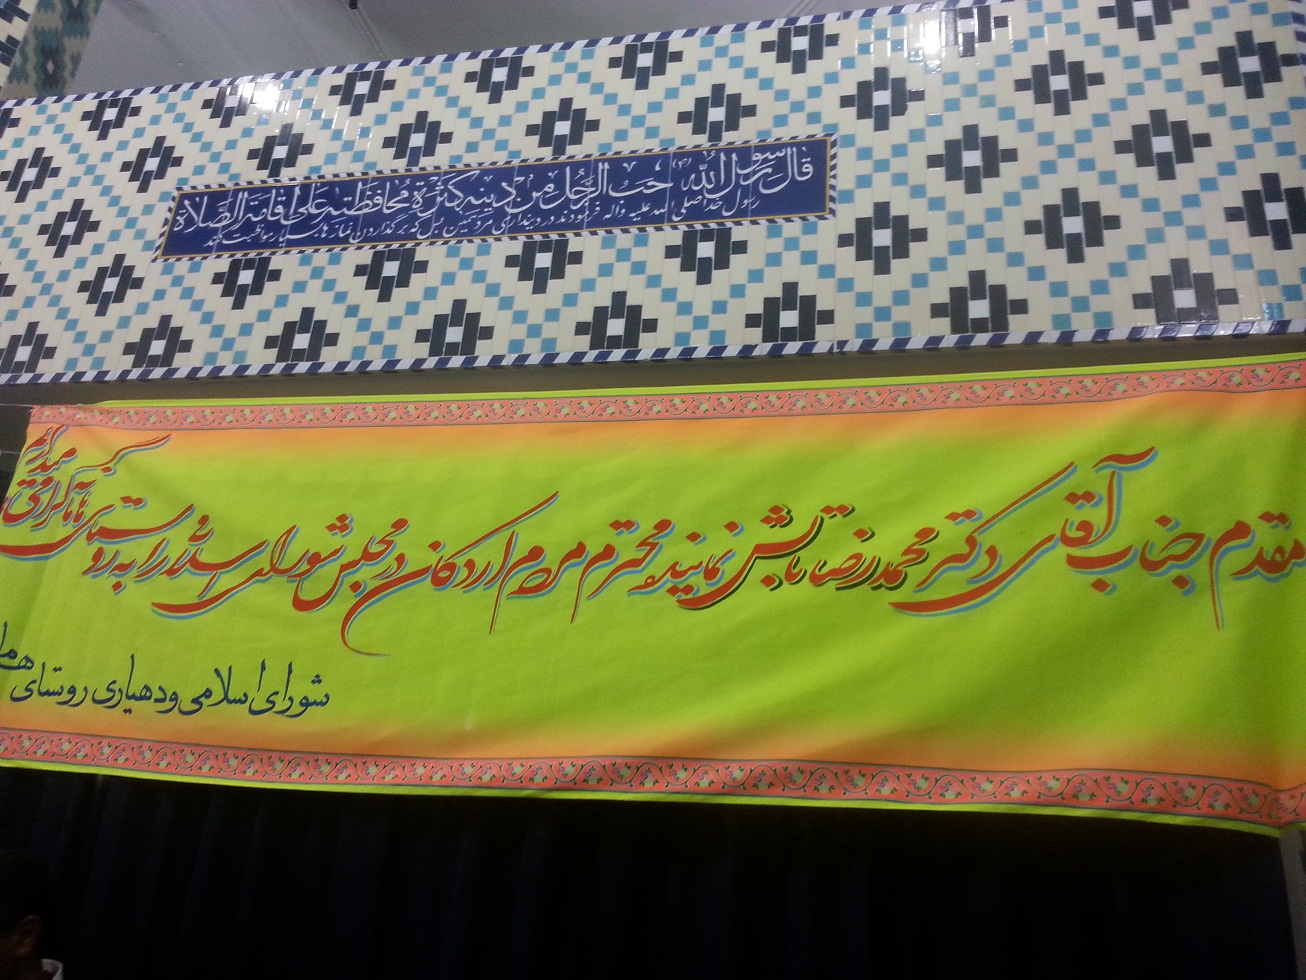 قال رسول الله (ص) حسب الرجل من دینه کثرة محافظته علی اقامة الصلاة
رسول خدا صلی الله علیه واله فرمودند در دینداری مرد همین بس که بر گذاردن نمازها بسیار مواظبت کند
مقدم جناب آقای دکتر محمدرضا تابش نماینده محترم مردم اردکان در مجلس شورای اسلامی را به روستای هامانه گرامی میداریم
شورای اسلامی ودهیاری روستای هاما